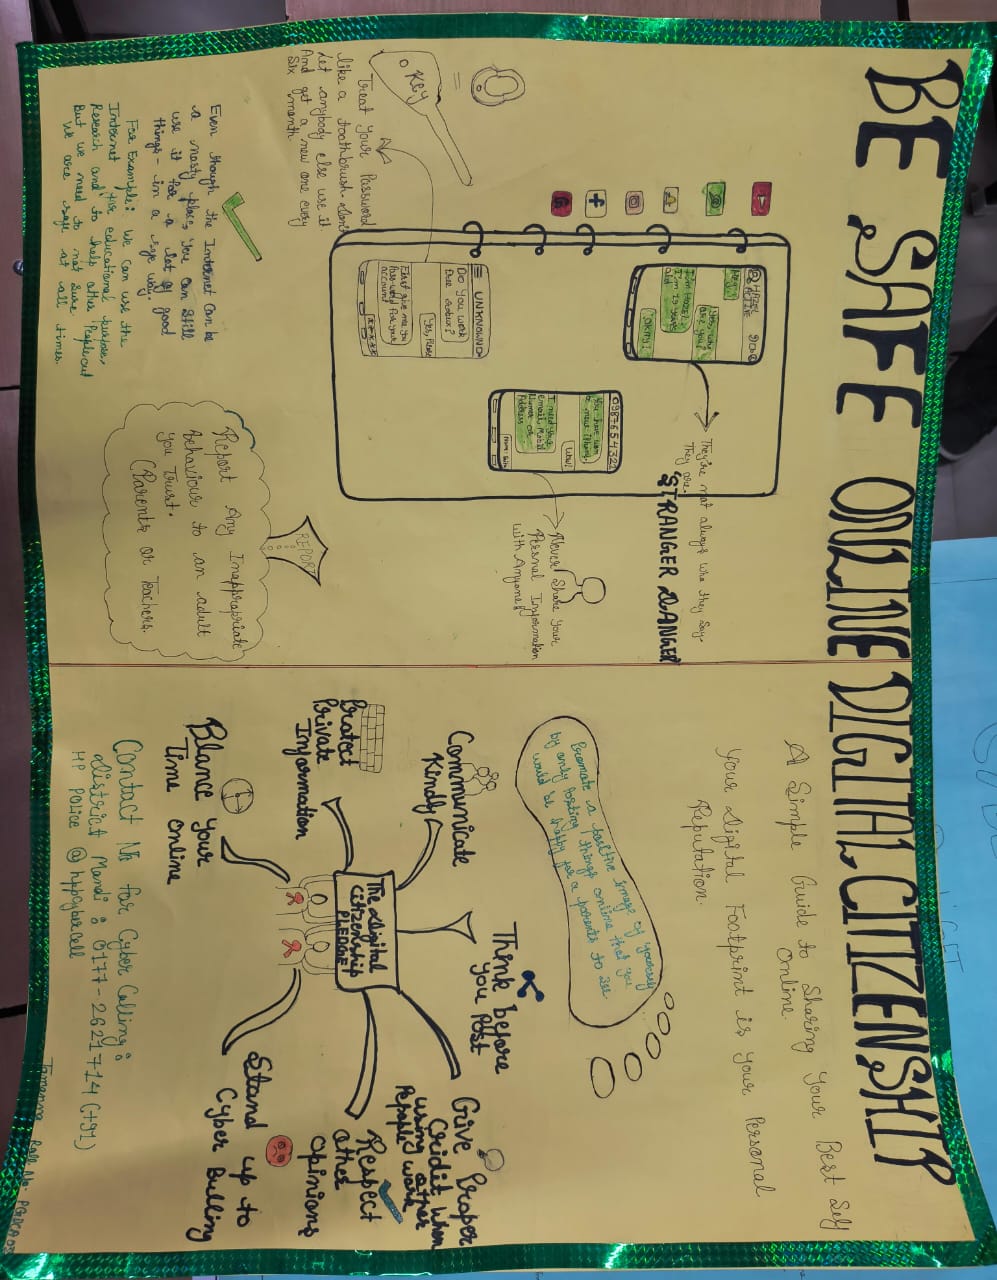 BE SAFE ONLINE DIGITAL CITIZENSHIP
A Simple Guide to Sharing Your Best Self
Online
Your Digital Footprint is Your Personal
Reputation.
They're not always who they say
They are.
'STRANGER DANGER
Hey!
Yes, who
are you?
I'm 13 years
old
0987654321
You have won
a new iPhone!
Wow!
I need your
email, Mobile
Number or
Address
Never Share Your
Personal Information
with Anyone
UNKNOWN
Do You Work
Due Sodur?
Yes, Please
Just give me you
Password for your
account
KEY
=
Treat Your Password
like a toothbrush don't
let anybody else use it
And get a new one every
Six month
Even though the Internet can be
a nasty place, you can still
use it for a lot of good
things - in a sage way.
For Example: We can use the
Internet for educational purpose,
Research and to help other People out
But we need to not sure
We are safe at all times.
REPORT
Report Any Inappropriate
Behaviour to an adult
you Trust.
(Parents or Teachers.
Promote a positive image of yourself
by only posting things online that you
would be happy for a parents to see
The digital
Citizenship
PLEDGE!
Communicate
Kindly
Think before
You Post
Give Proper
Cridit when
using other
People work
Respect
other
opinions
Stand up to
Cyber Bulling
Protect
Private
Information
Blance your
Time online
Contact No for Cyber Calling:
district Mandi: 0177-2621714 (+91)
HP Police @ hppcybercell
Tamanna Roll No.